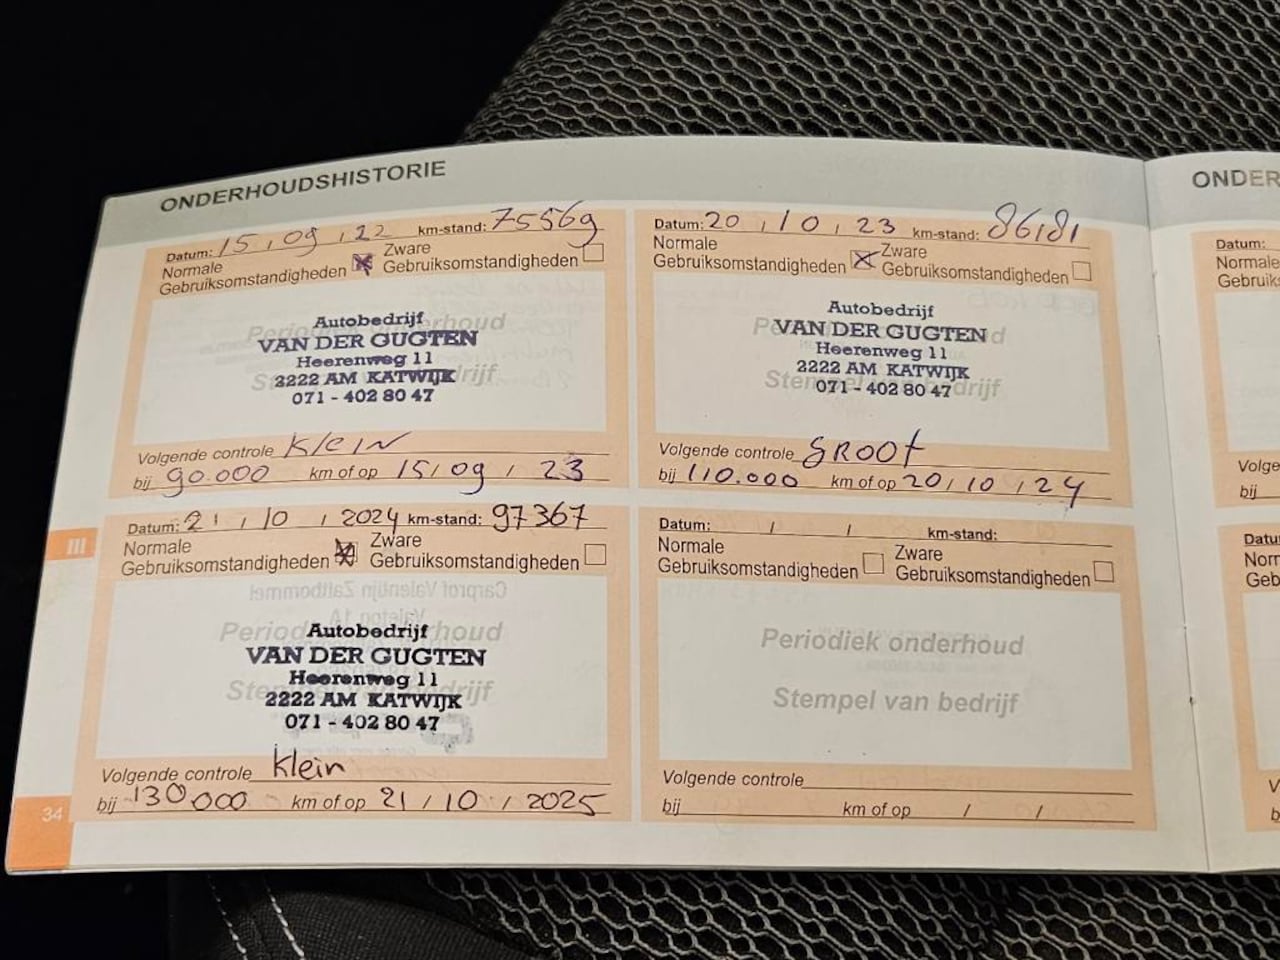 ONDERHOUDSHISTORIE
Datum: 15 / 09 / 22 km-stand: 75569
Normale Gebruiksomstandigheden Zware Gebruiksomstandigheden
Periodiek onderhoud
Stempel van bedrijf
Autobedrijf
VAN DER GUGTEN
Heerenweg 11
2222 AM KATWIJK
071 - 402 80 47
Volgende controle Klein
bij 90.000 km of op 15 / 09 / 23
Datum: 20 / 10 / 23 km-stand: 86181
Normale Gebruiksomstandigheden Zware Gebruiksomstandigheden
Autobedrijf
VAN DER GUGTEN
Heerenweg 11
2222 AM KATWIJK
071 - 402 80 47
Stempel van bedrijf
Volgende controle GROOT
bij 110.000 km of op 20 / 10 / 24
Datum: 21 / 10 / 2024 km-stand: 97367
Normale Gebruiksomstandigheden Zware Gebruiksomstandigheden
Periodiek onderhoud
Stempel van bedrijf
Autobedrijf
VAN DER GUGTEN
Heerenweg 11
2222 AM KATWIJK
071 - 402 80 47
Volgende controle klein
bij 130.000 km of op 21 / 10 / 2025
Datum: / / km-stand:
Normale Gebruiksomstandigheden Zware Gebruiksomstandigheden
Periodiek onderhoud
Stempel van bedrijf
Volgende controle
bij km of op / /
III
34
ONDER
Datum:
Normale
Gebruiks
Volge
bij
Datu
Norm
Geb
V
b